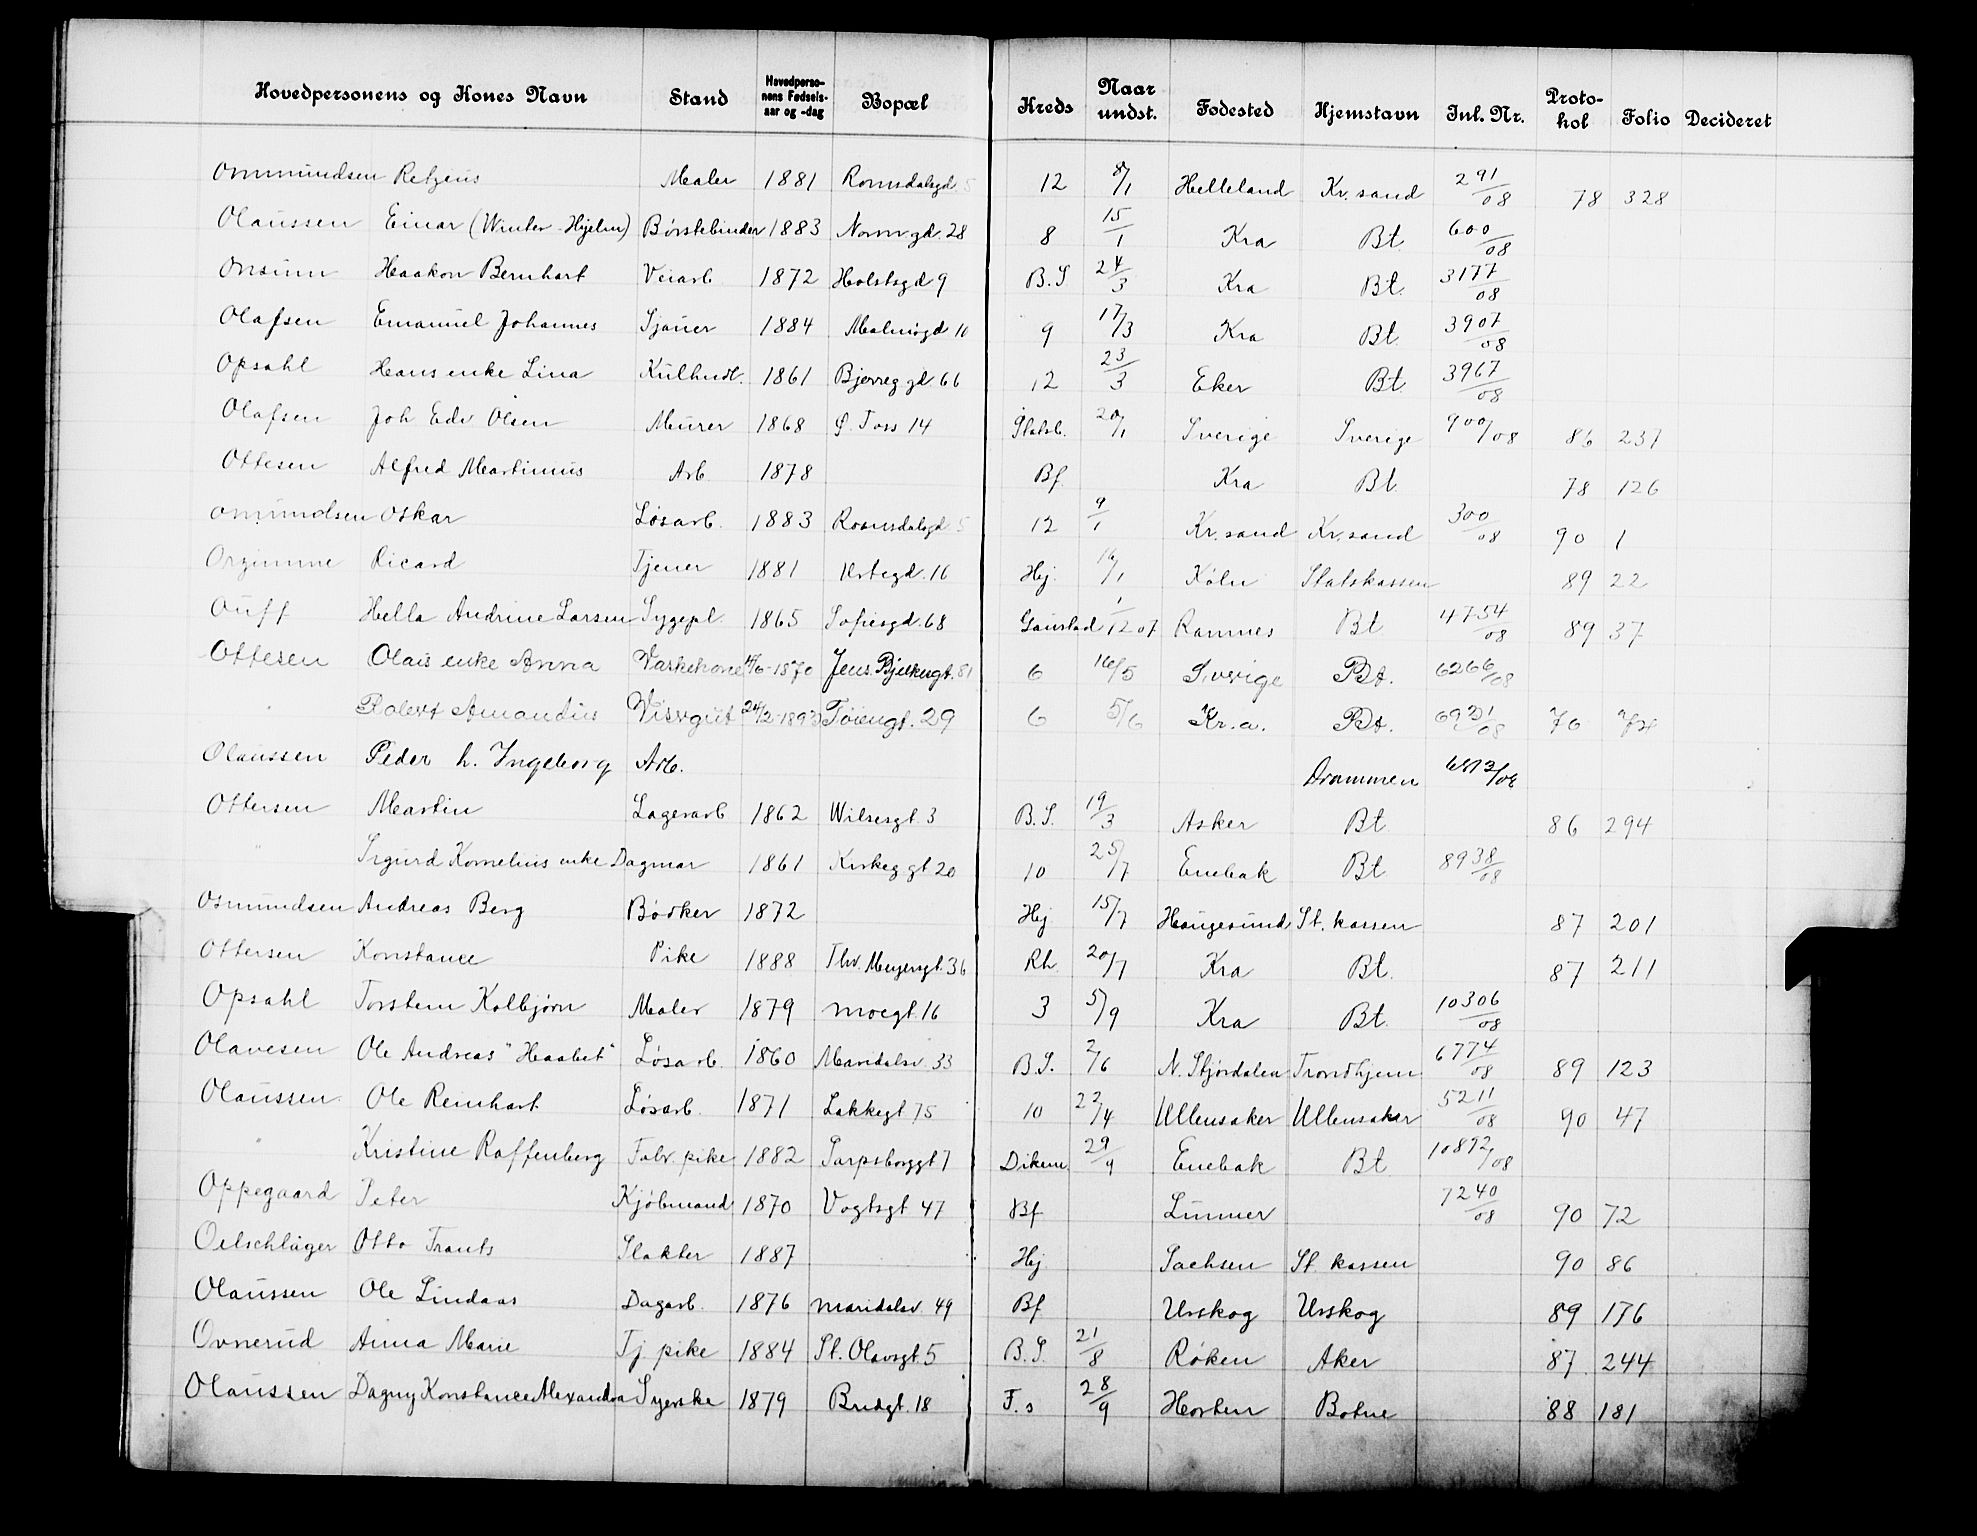 Hovedpersonens og Kones Navn Stand Hovedpersonens Fødsels-aar og -dag Bopæl Kreds Naar undst. Fodested Hjemstavn Inl. Nr. Protokol Folio Decideret
Ommundsen Retzius Maler 1881 Romsdalsgd. 5 12 8/1 Helleland Kr.sand 291/08 78 328
Olaussen Einar (Winter-Hjelm) Børstebinder 1883 Normgd. 28 8 15/1 Kra Bt. 600/08
Onsum Haakon Bernhart Veiarb. 1872 Holstsgd 9 B.S. 24/3 Kra Bt. 3177/08
Olafsen Emanuel Johannes Sjauer 1884 Malmøgd 10 9 17/3 Kra Bt. 3907/08
Opsahl Hans enke Lina Kulhndl. 1861 Bjerreggd. 66 12 23/3 Eker Bt. 3967/08
Olafsen Joh Edv Olsen Murer 1868 Ø. Foss 14 Statsb. 20/1 Sverige Sverige 900/08 86 237
Ottesen Alfred Martinius Arb 1878 Bf. Kra Bt. 78 126
Omundsen Oskar Løsarb. 1883 Romsdalsgd 5 12 9/1 Kr.sand Kr.sand 300/08 90 1
Ricard Tjener 1881 Urtegd. 16 Hj. 16/1 Køln Statskassen 89 22
Ouff Hella Andrine Larsen Sygepl. 1865 Sofiesgd. 68 Gaustad 1/12 07 Ramnes Bt 4754/08 89 37
Ottesen Olais enke Anna Vaskekone 1870 Jens Bjelkesgt. 81 6 16/5 Sverige Bt. 6266/08
" Robert Amandus Visergut 24/2-1893 Tøiengt. 29 6 5/6 Kr.a. Bt. 6931/08 76
Olaussen Peder h. Ingeborg Arb. Drammen
Ottersen Martin Lagerarb 1862 Wilsesgt 3 B.S. 19/3 Asker Bt. 86 294
" Sigurd Kornelius enke Dagmar 1861 Kirkeggt 20 10 25/7 Enebak Bt. 8938/08
Osmundsen Andreas Berg Bødker 1872 Hj 15/7 Haugesund St. kassen 87 201
Ottersen Konstance Pike 1888 Thv. Meyersgt. 36 Rh. 20/7 Kra Bt. 87 211
Opsahl Torstein Kolbjørn Maler 1879 Moegt. 16 3 5/9 Kra Bt. 10306/08
Olavesen Ole Andreas "Haabet" Løsarb. 1860 Maridalsv. 33 B.S. 2/6 N. Stjørdalen Trondhjem 6774/08 89 123
Olaussen Ole Reinhart Løsarb. 1871 Lakkegt 75 10 22/4 Ullensaker Ullensaker 5211/08 90 47
" Kristine Raffenberg Fabr. pike 1882 Sarpsborggt 7 Dikem. 29/9 Enebak Bt 10892/08
Oppegaard Peter Kjøbmand 1870 Vogtsgt 47 Bf Lunner 7240/08 90 72
Oelschläger Otto Frants Slakter 1887 Hj Sachsen St. kassen 90 86
Olaussen Ole Lindaas Dagarb. 1876 Maridalsv. 49 Bf. Urskog Urskog 89 176
Ovnerud Anna Marie Tj pike 1884 St. Olavsgt. 5 B.S. 21/8 Røken Aker 87 244
Olaussen Dagny Konstance Alexandra Syerske 1879 Brudgt. 18 F.s 28/9 Horten Botne 88 181